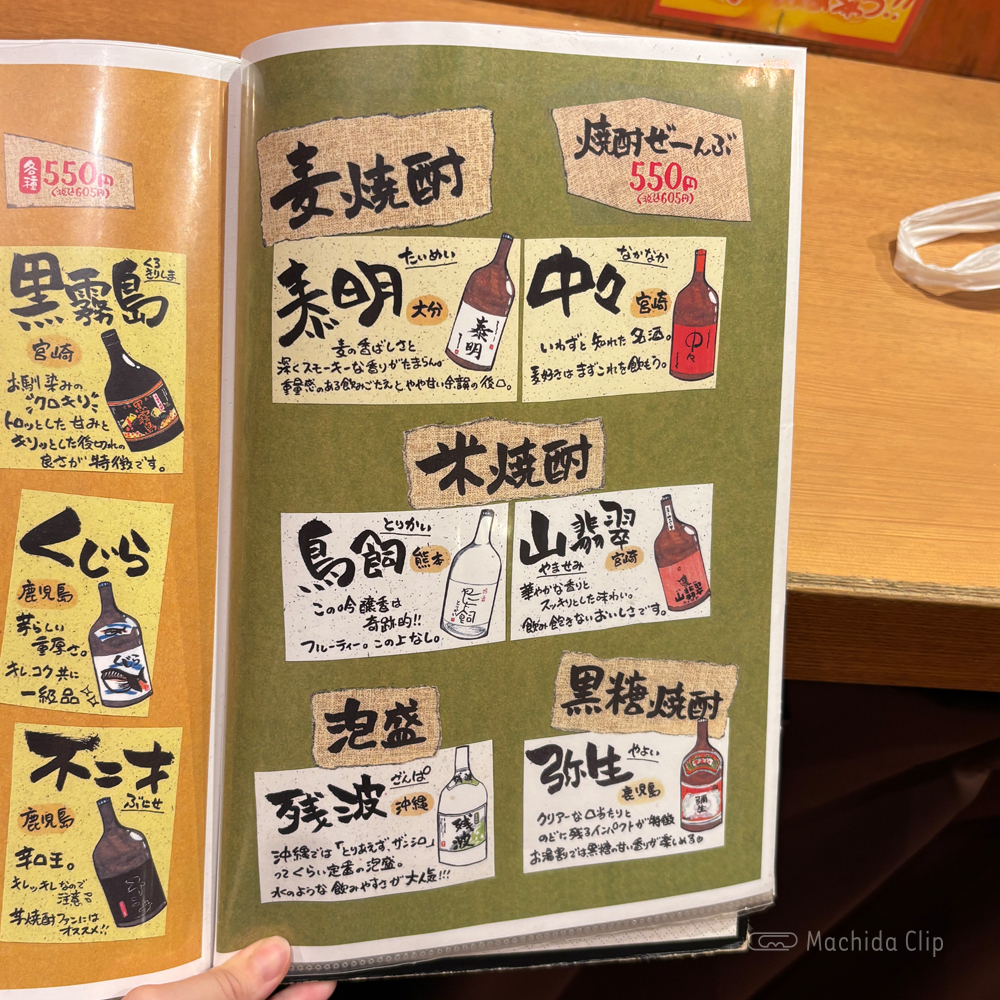 各種
550円
(税込605円)
黒霧島
くろきりしま
宮崎
お馴染みの
"クロキリ"
トロッとした甘みと
キリッとした後切れの
良さが特徴です。
くじら
鹿児島
芋らしい
重厚さ。
キレ、コク共に
一級品
くじら
不二才
ぶにせ
鹿児島
辛口王。
キレッキレなので
注意
芋焼酎ファンには
オススメ!!
麦焼酎
焼酎ぜーんぶ
550円
(税込605円)
泰明
たいめい
大分
泰明
麦の香ばしさと
深くスモーキーな香りがたまらん。
重量感のある飲みごたえとやや甘い余韻の後口。
中々
なかなか
宮崎
中々
いわずと知れた名酒。
麦好きはまずこれを飲もう。
米焼酎
鳥飼
とりかい
熊本
鳥飼
この吟醸香は
奇跡的!!
フルーティー。この上なし。
山翡翠
やませみ
宮崎
山翡翠
華やかな香りと
スッキリとした味わい。
飲み飽きないおいしさです。
泡盛
残波
ざんぱ
沖縄
残波
沖縄では「とりあえず、ザンシロ」
ってくらい定番の泡盛。
水のような飲みやすさが大人気!!!
黒糖焼酎
弥生
やよい
鹿児島
彌生
クリアーな口当たりと
のどに残るインパクトが特徴
お湯割では黒糖の甘い香りが楽しめる。
Machida Clip